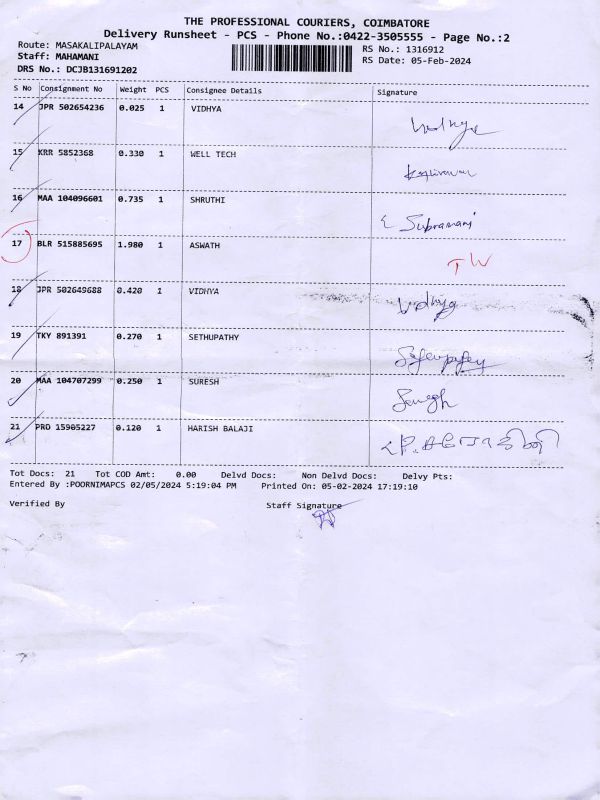 THE PROFESSIONAL COURIERS, COIMBATORE
Delivery Runsheet - PCS - Phone No.:0422-3505555 - Page No.:2
Route: MASAKALIPALAYAM
Staff: MAHAMANI
DRS No.: DCJB131691202
RS No.: 1316912
RS Date: 05-Feb-2024
S No Consignment No Weight PCS Consignee Details Signature
14 JPR 502654236 0.025 1 VIDHYA Vidhya
15 KRR 5852368 0.330 1 WELL TECH
16 MAA 104096601 0.735 1 SHRUTHI Subramani
17 BLR 515885695 1.980 1 ASWATH TW
18 JPR 502649688 0.420 1 VIDHYA Vidhya
19 TKY 891391 0.270 1 SETHUPATHY
20 MAA 104707299 0.250 1 SURESH Suresh
21 PRO 15905227 0.120 1 HARISH BALAJI
Tot Docs: 21 Tot COD Amt: 0.00 Delvd Docs: Non Delvd Docs: Delvy Pts:
Entered By :POORNIMAPCS 02/05/2024 5:19:04 PM Printed On: 05-02-2024 17:19:10
Verified By Staff Signature